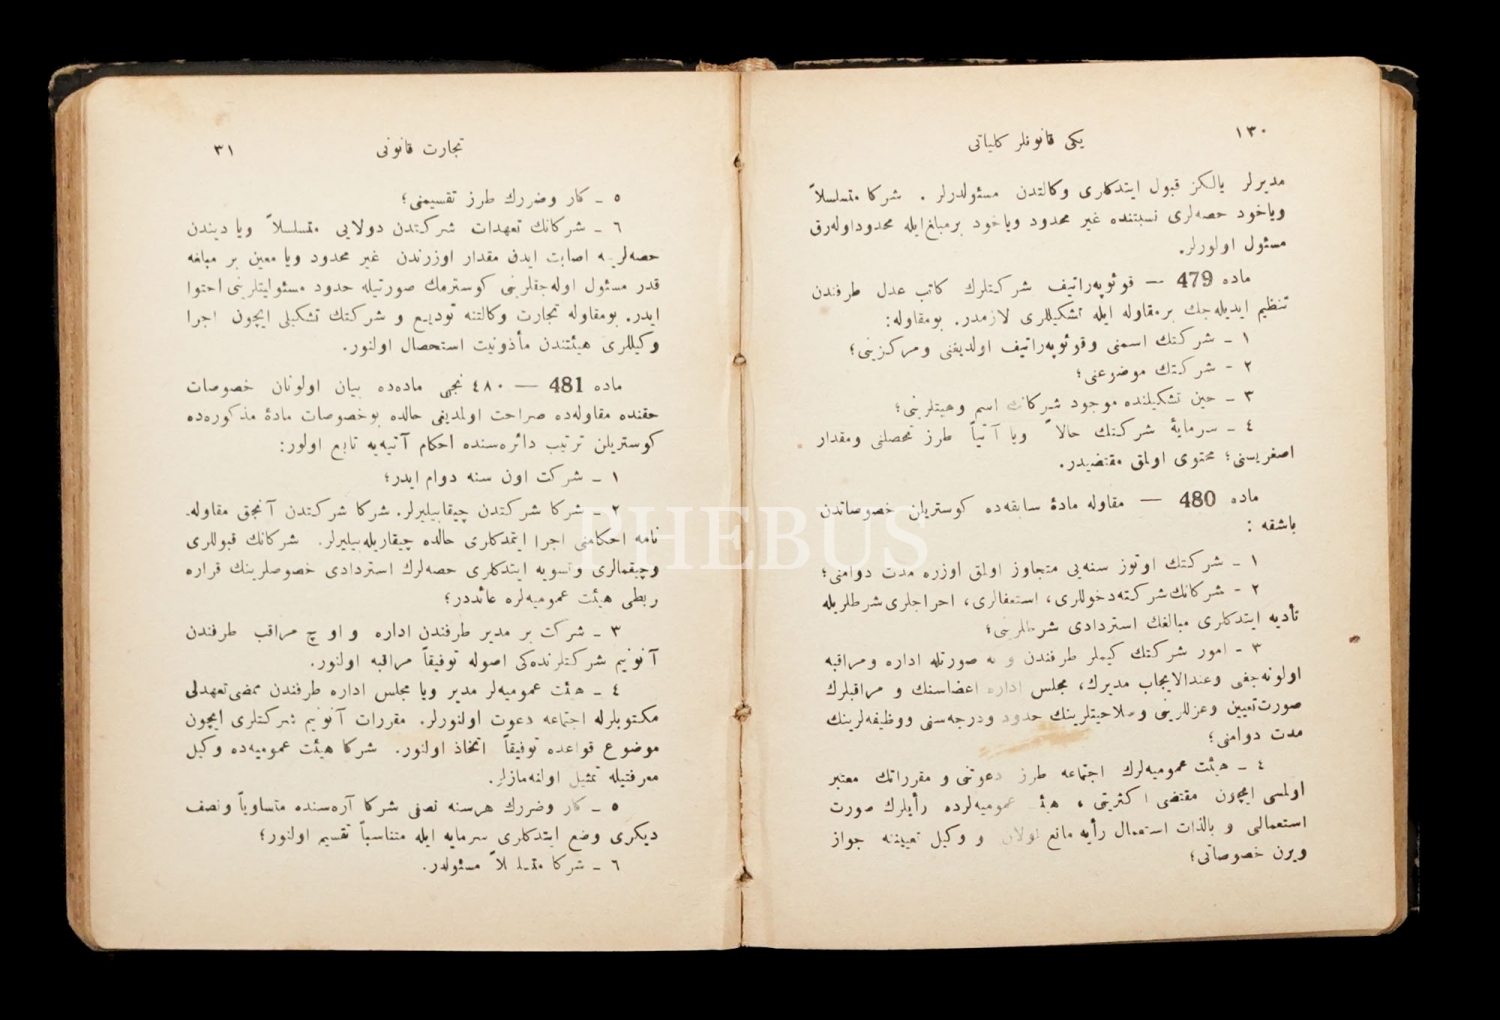 ١٣٠
يكى قانونلر كلياتى
مديرلر يالكز قبول ايتدكلرى وكالتدن مسئولدرلر . شركا متسلسلاً
وياخود حصه‌لرى نسبتنده غير محدود وياخود برمبلغ‌ايله محدوداوله‌رق
مسئول اولورلر.
ماده 479 — قوئوپه‌راتيف شركتلرك كاتب عدل طرفندن
تنظيم ايديله‌جك برمقاوله ايله تشكيللرى لازمدر. بومقاوله:
١ - شركتك اسمنى وقوئوپه‌راتيف اولديغنى ومركزينى؛
٢ - شركتك موضوعنى؛
٣ - حين تشكيلنده موجود شركانك اسم وهيتلرينى؛
٤ - سرمايۀ شركتك حالاً ويا آتياً طرز تحصلنى ومقدار
اصغريسنى؛ محتوى اولمق مقتضيدر.
ماده 480 — مقاوله مادۀ سابقه‌ده كوستريلن خصوصاتدن
باشقه :
١ - شركتك اوتوز سنه‌يى متجاوز اولمق اوزره مدت دوامنى؛
٢ - شركانك‌شركته‌دخوللرى، استعفالرى، احراجلرى‌شرطلريله
تأديه ايتدكلرى مبالغك استردادى شرطلرينى؛
٣ - امور شركتك كيملر طرفندن و نه صورتله اداره ومراقبه
اولونه‌جغى وعندالايجاب مديرك، مجلس اداره اعضاسنك و مراقبلرك
صورت‌تعيين وعزللرينى وصلاحيتلرينك حدود ودرجه‌سنى ووظيفه‌لرينك
مدت دوامنى؛
٤ - هيئت عموميه‌لرك اجتماعه طرز دعوتنى و مقرراتك معتبر
اولمسى ايچون مقتضى اكثريتى ، هيئت عموميه‌لرده رأيلرك صورت
استعمالى و بالذات استعمال رأيه مانع اولان و وكيل تعييننه جواز
ويرن خصوصاتى؛
تجارت قانونى
٣١
٥ - كار وضررك طرز تقسيمنى؛
٦ - شركانك تعهدات شركتدن دولايى متسلسلاً ويا ديندن
حصه‌لرينه اصابت ايدن مقدار اوزرندن غير محدود ويا معين بر مبلغه
قدر مسئول اوله‌جقلرينى كوسترمك صورتيله حدود مسئوليتلرينى احتوا
ايدر. بومقاوله تجارت وكالتنه توديع و شركتك تشكيلى ايچون اجرا
وكيللرى هيئتندن مأذونيت استحصال اولنور.
ماده 481 — ٤٨٠ نجى ماده‌ده بيان اولونان خصوصات
حقنده مقاوله‌ده صراحت اولمديغى حالده بوخصوصات مادۀ مذكوره‌ده
كوستريلن ترتيب دائره‌سنده احكام آتيه‌يه تابع اولور:
١ - شركت اون سنه دوام ايدر؛
٢ - شركا شركتدن چيقابيليرلر. شركا شركتدن آنجق مقاوله.
نامه احكامنى اجرا ايتمدكلرى حالده چيقاريله‌بيليرلر. شركانك قبوللرى
وچيقمالرى وتسويه ايتدكلرى حصه‌لرك استردادى خصوصلرينك قراره
ربطى هيئت عموميه‌لره عائددر؛
٣ - شركت بر مدير طرفندن اداره و اوچ مراقب طرفندن
آنونيم شركتلرنده‌كى اصوله توفيقاً مراقبه اولنور.
٤ - هيئت عموميه‌لر مدير ويا مجلس اداره طرفندن ممضى‌تعهدلى
مكتوبلرله اجتماعه دعوت اولنورلر. مقررات آنونيم شركتلرى ايچون
موضوع قواعده توفيقاً اتخاذ اولنور. شركا هيئت عموميه‌ده وكيل
معرفتيله تمثيل اولنه‌مازلر.
٥ - كار وضررك هرسنه نصفى شركا آره‌سنده متساوياً ونصف
ديكرى وضع ايتدكلرى سرمايه ايله متناسباً تقسيم اولنور؛
٦ - شركا متسلسلاً مسئولدر.
PHEBUS